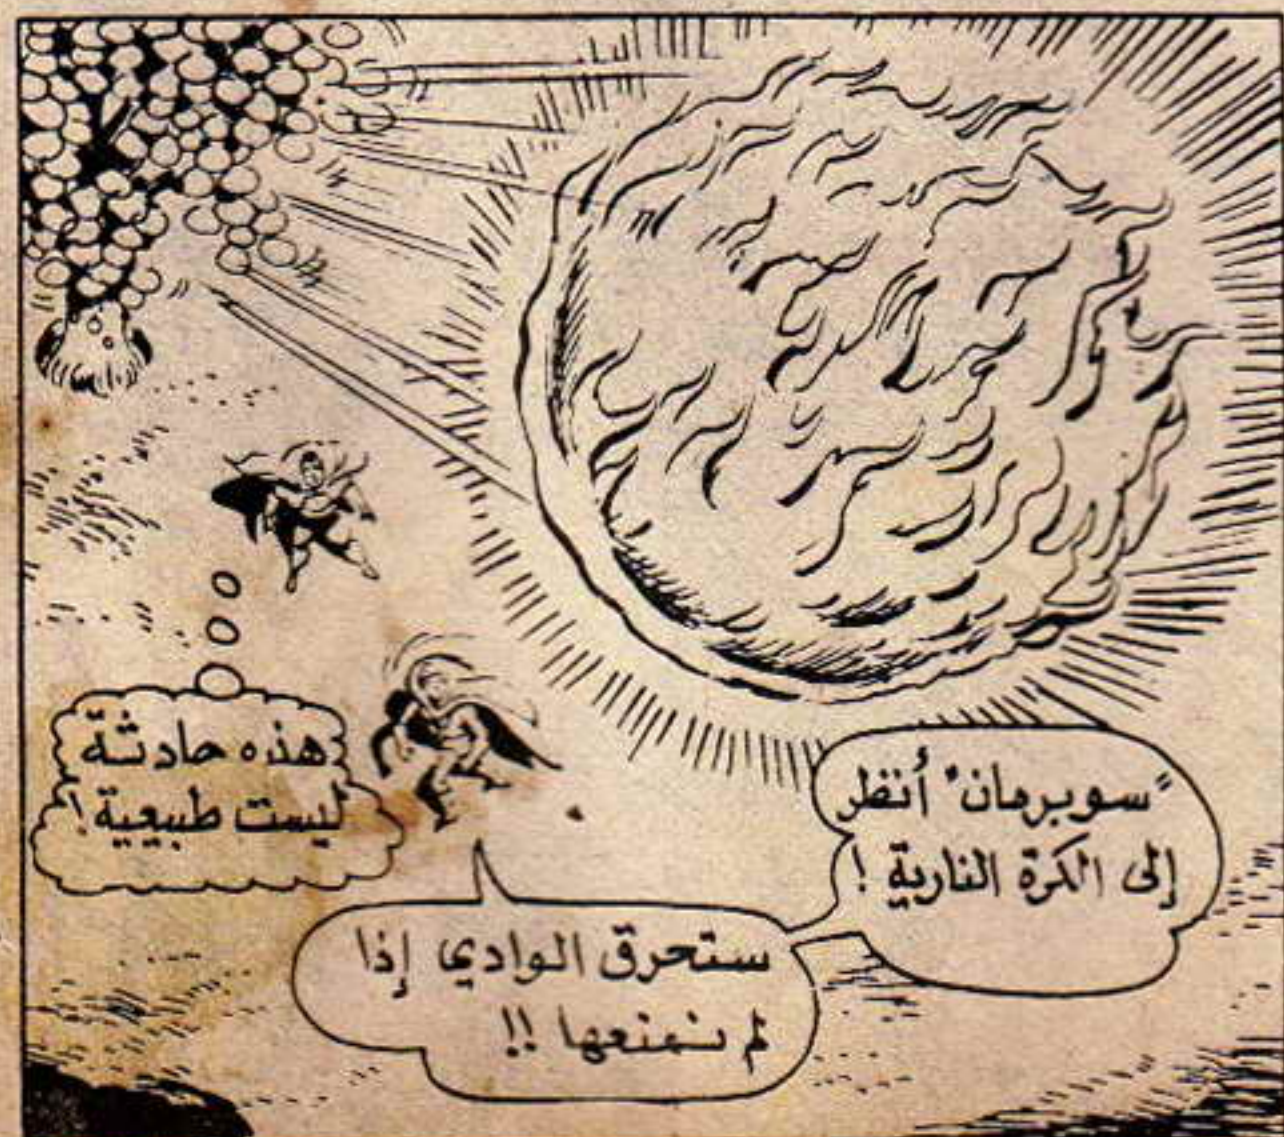 "سوبرمان" أنظر
إلى الكرة النارية !
ستحرق الوادي إذا
لم نمنعها !!
هذه حادثة
ليست طبيعية !